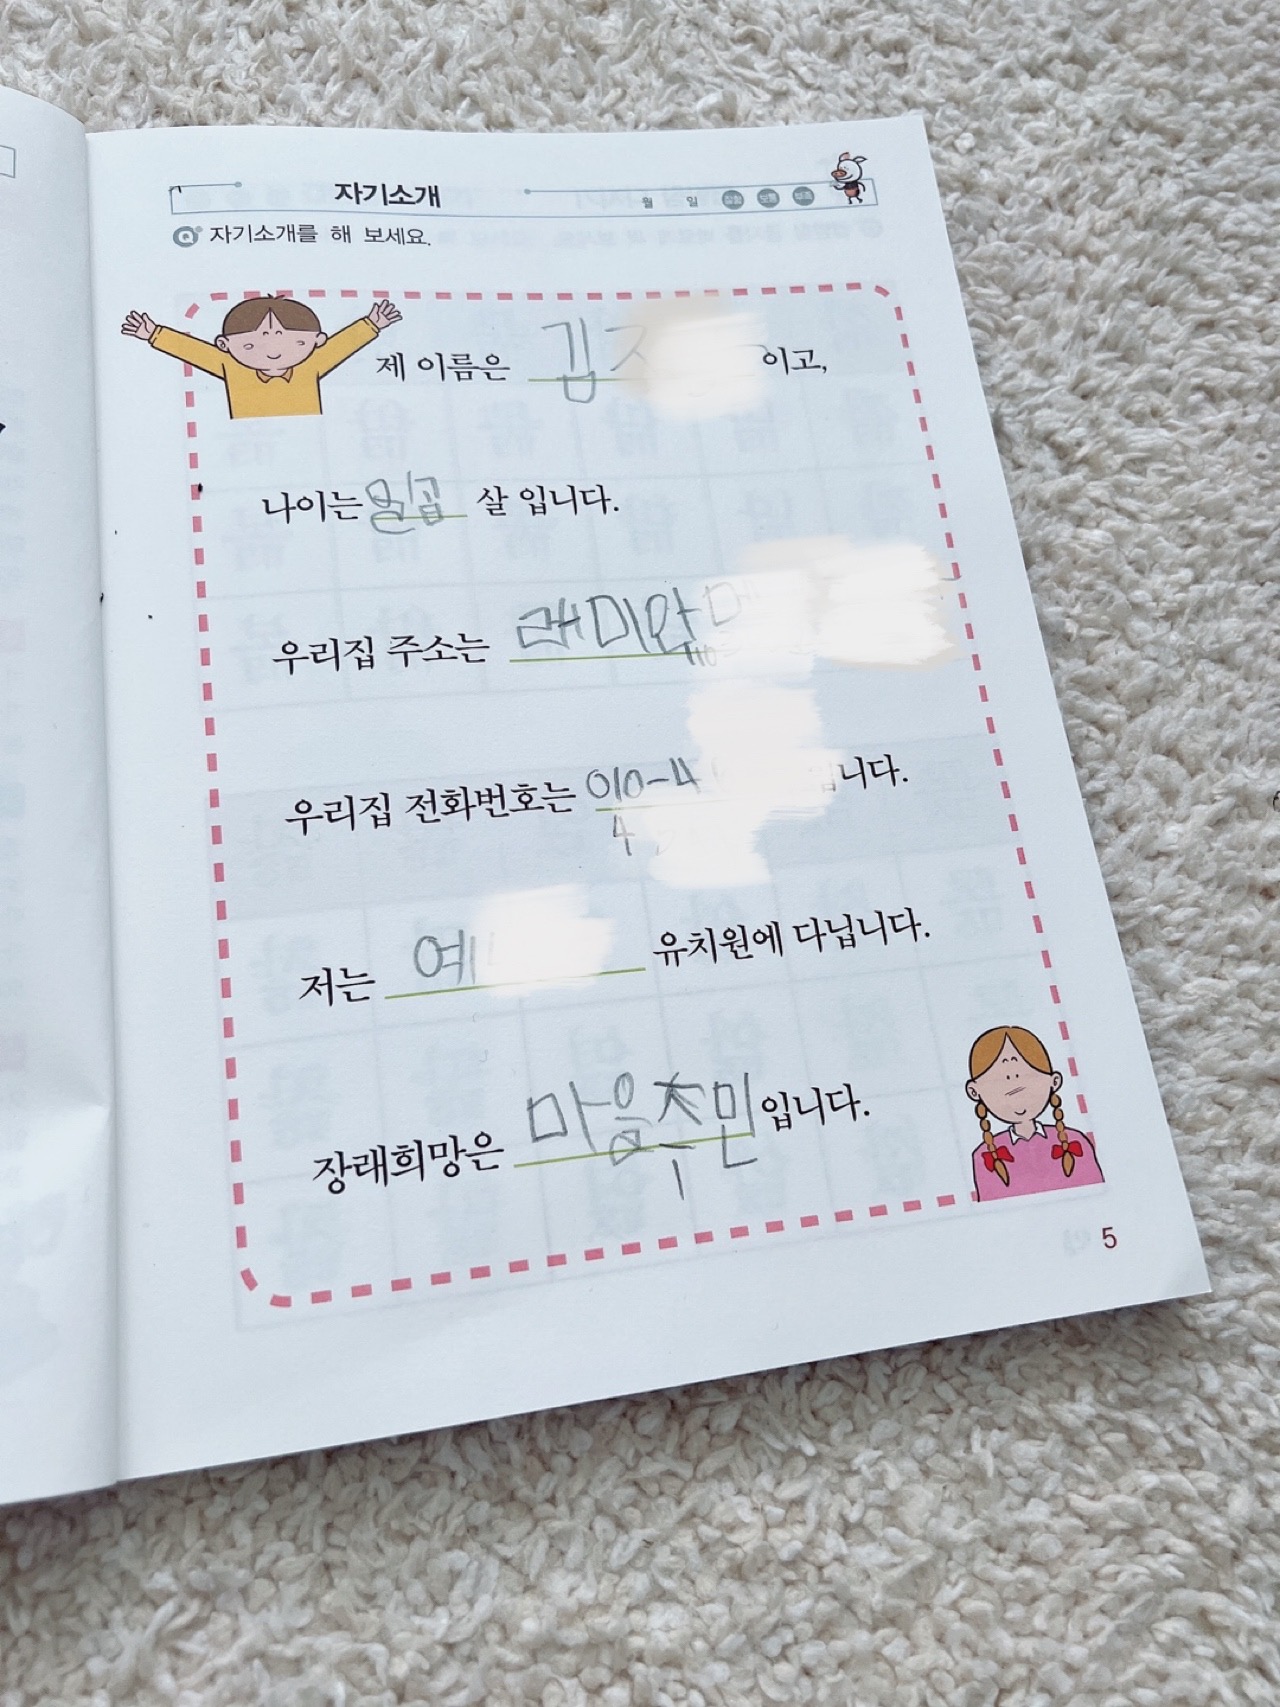 자기소개
월 일
자기소개를 해 보세요.
제 이름은 김 이고,
나이는 일곱 살 입니다.
우리집 주소는 래미안
우리집 전화번호는 010-4 입니다.
4
저는 예 유치원에 다닙니다.
장래희망은 마음주민 입니다.
5